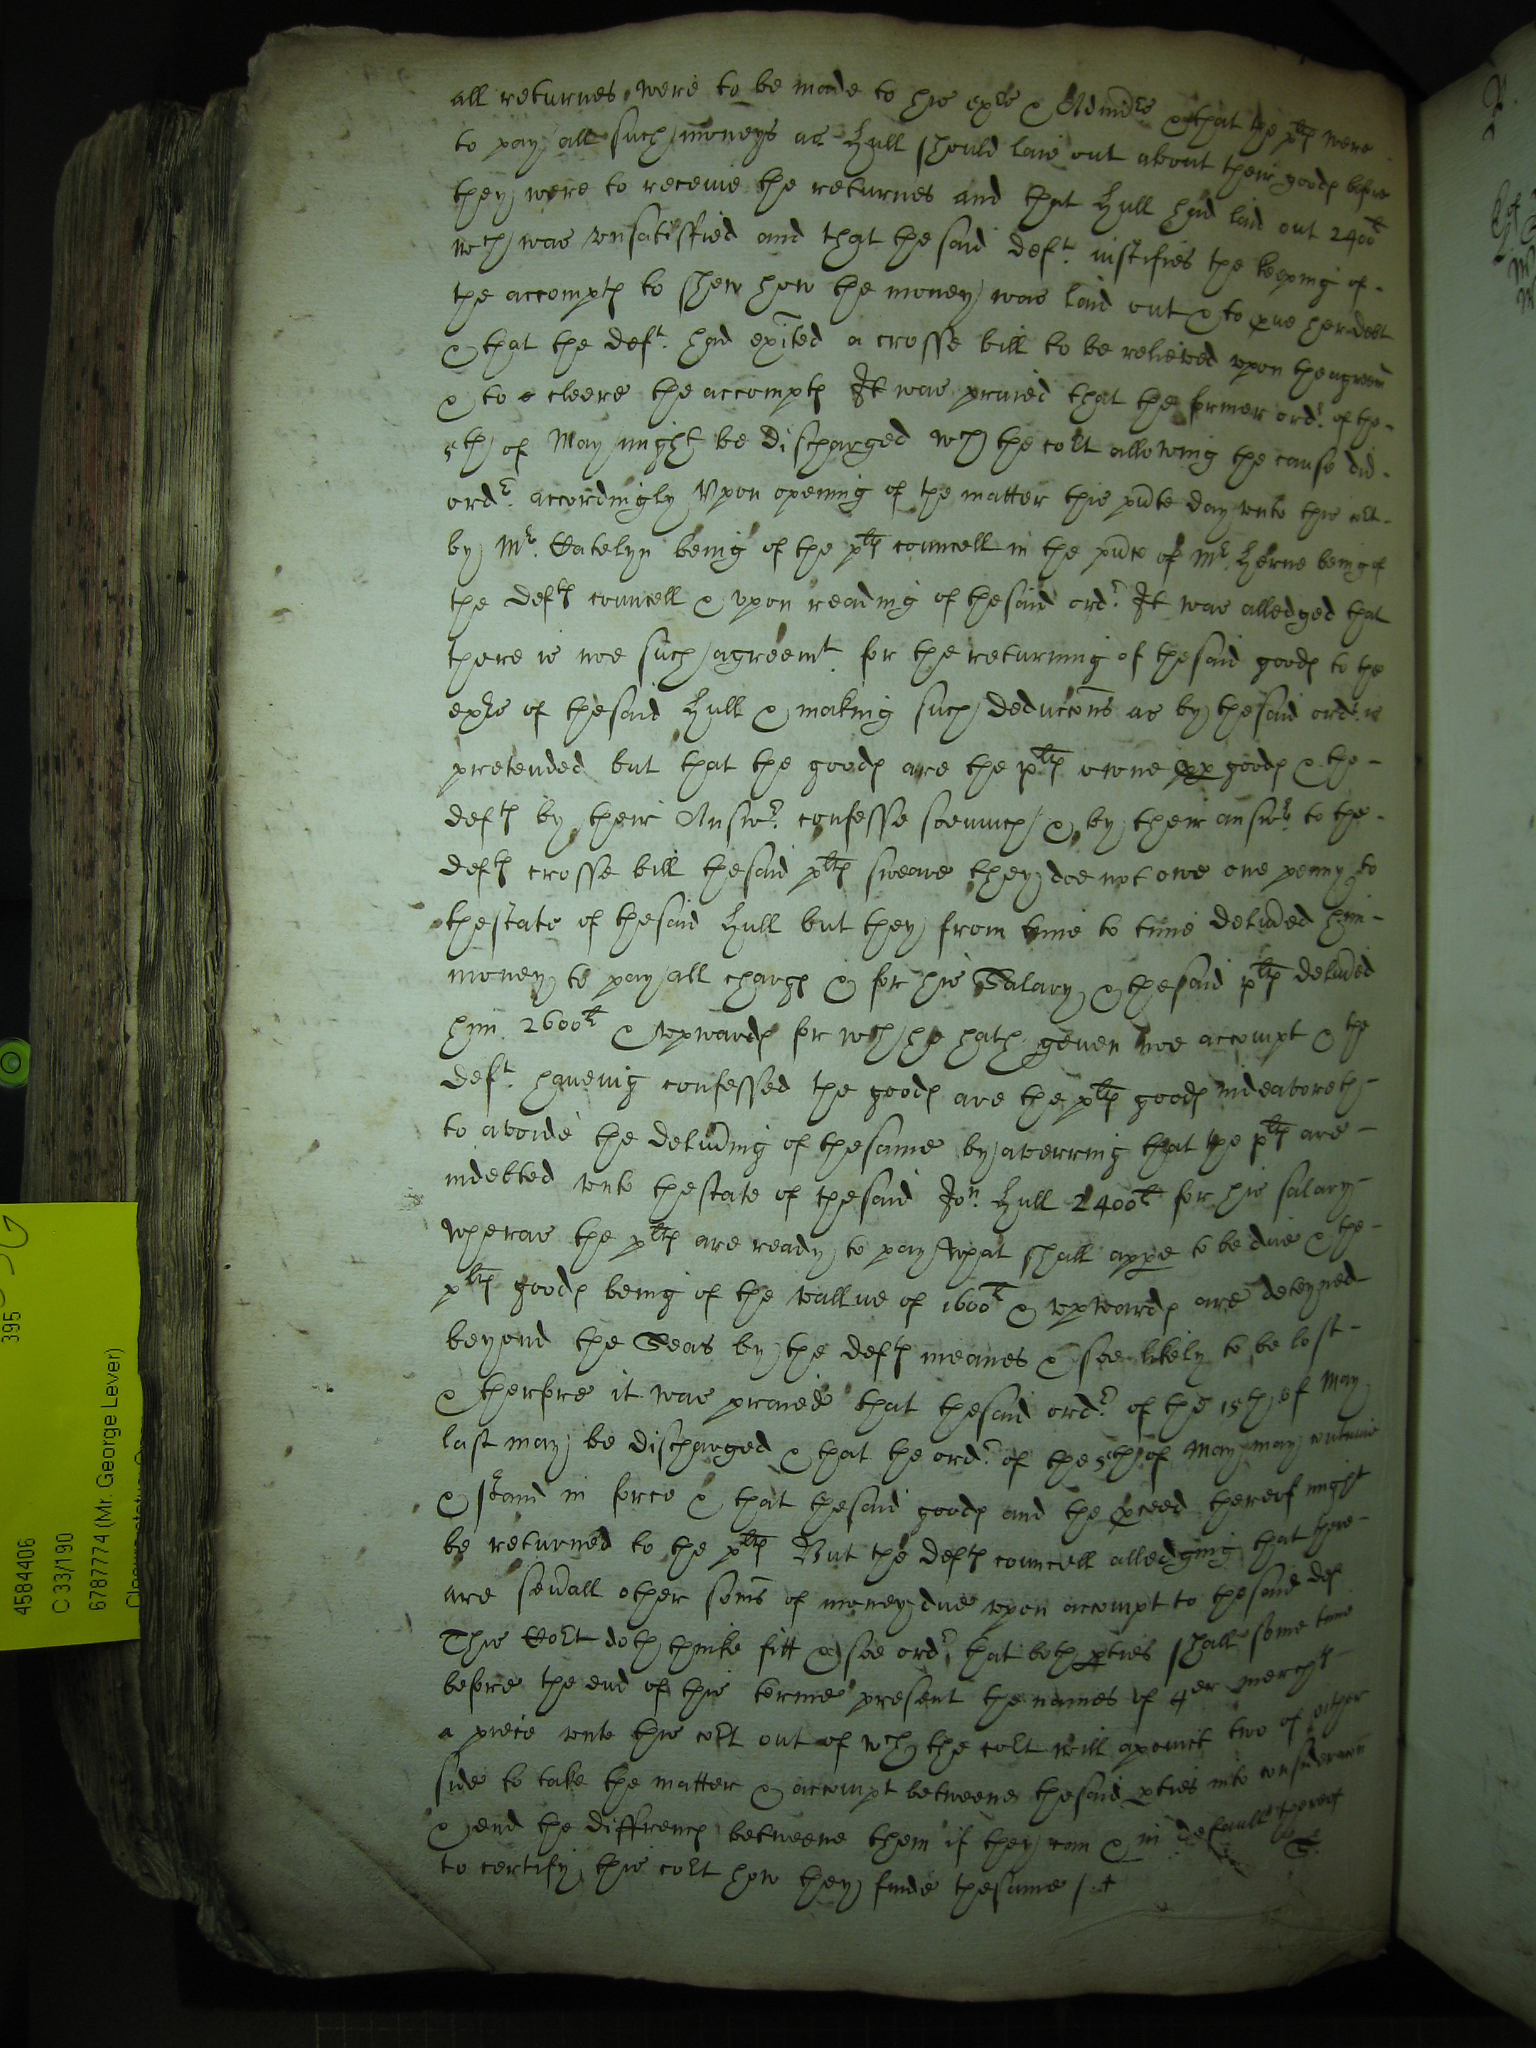 all returnes were to be made to his exrs & Admrs & that the plts were
to pay all such moneys as Hull should laie out about their goods before
they were to receive the returnes and that Hull had laid out 2400li
wch was vnsatisfied and that the said deft. iustifies the keeping of
the accompts to shew how the money was laid out & to pve her debt
& that the deft. had exited a crosse bill to be releived vpon the agreemt
& to cleere the accompts It was praied that the former ordr. of the
5th of May might be discharged wch the cort allowing the cause did
ordr. accordingly Vpon opening of the matter this pnte day vnto this cort
by Mr. Catelyn being of the plts councell in the pnce of Mr. Herne being of
the defts councell & vpon reading of the said ordr. It was alledged that
there is noe such agreemt. for the returning of the said goods to the
exrs of the said Hull & making such deduccons as by the said ordr. is
pretended but that the goods are the plts owne pp goods & the
defts by their Answr. confesse soemuch & by their answr. to the
defts crosse bill the said plts sweare they doe not owe one penny to
thestate of the said Hull but they from tyme to time delived him
money to pay all charges & for his Salary & the said plts delived
him 2600li & vpwards for wch he hath geven noe accompt & the
deft. haveing confessed the goods are the plts goods indeavoreth
to avoide the deliving of the same by averring that the plts are
indebted vnto thestate of the said Jon. Hull 2400li for his salary
wheras the plts are ready to pay what shall appe to be due & the
plts goods being of the vallue of 1600li & vpwards are deteyned
beyond the Seas by the defts meanes & soe likely to be lost
& therfore it was praied that the said ordr. of the 15th of May
last may be discharged & that the ordr. of the 5th of May may continue
& stand in force & that the said goods and the pceed thereof might
be returned to the plts But the defts councell alledging that there
are sevall other soms of money due vpon accompt to the said def
This Cort doth thinke fitt & soe ordr. that both pties shall some time
before the end of this terme present the names of 4er merchts
a peice vnto this cort out of wch the cort will apoint two of either
side to take the matter & accompt betweene the said pties into consideracon
& end the differences betweene them if they can & in default thereof
to certify this cort how they finde the same
395
4584406
C 33/190
6787774 (Mr. George Lever)